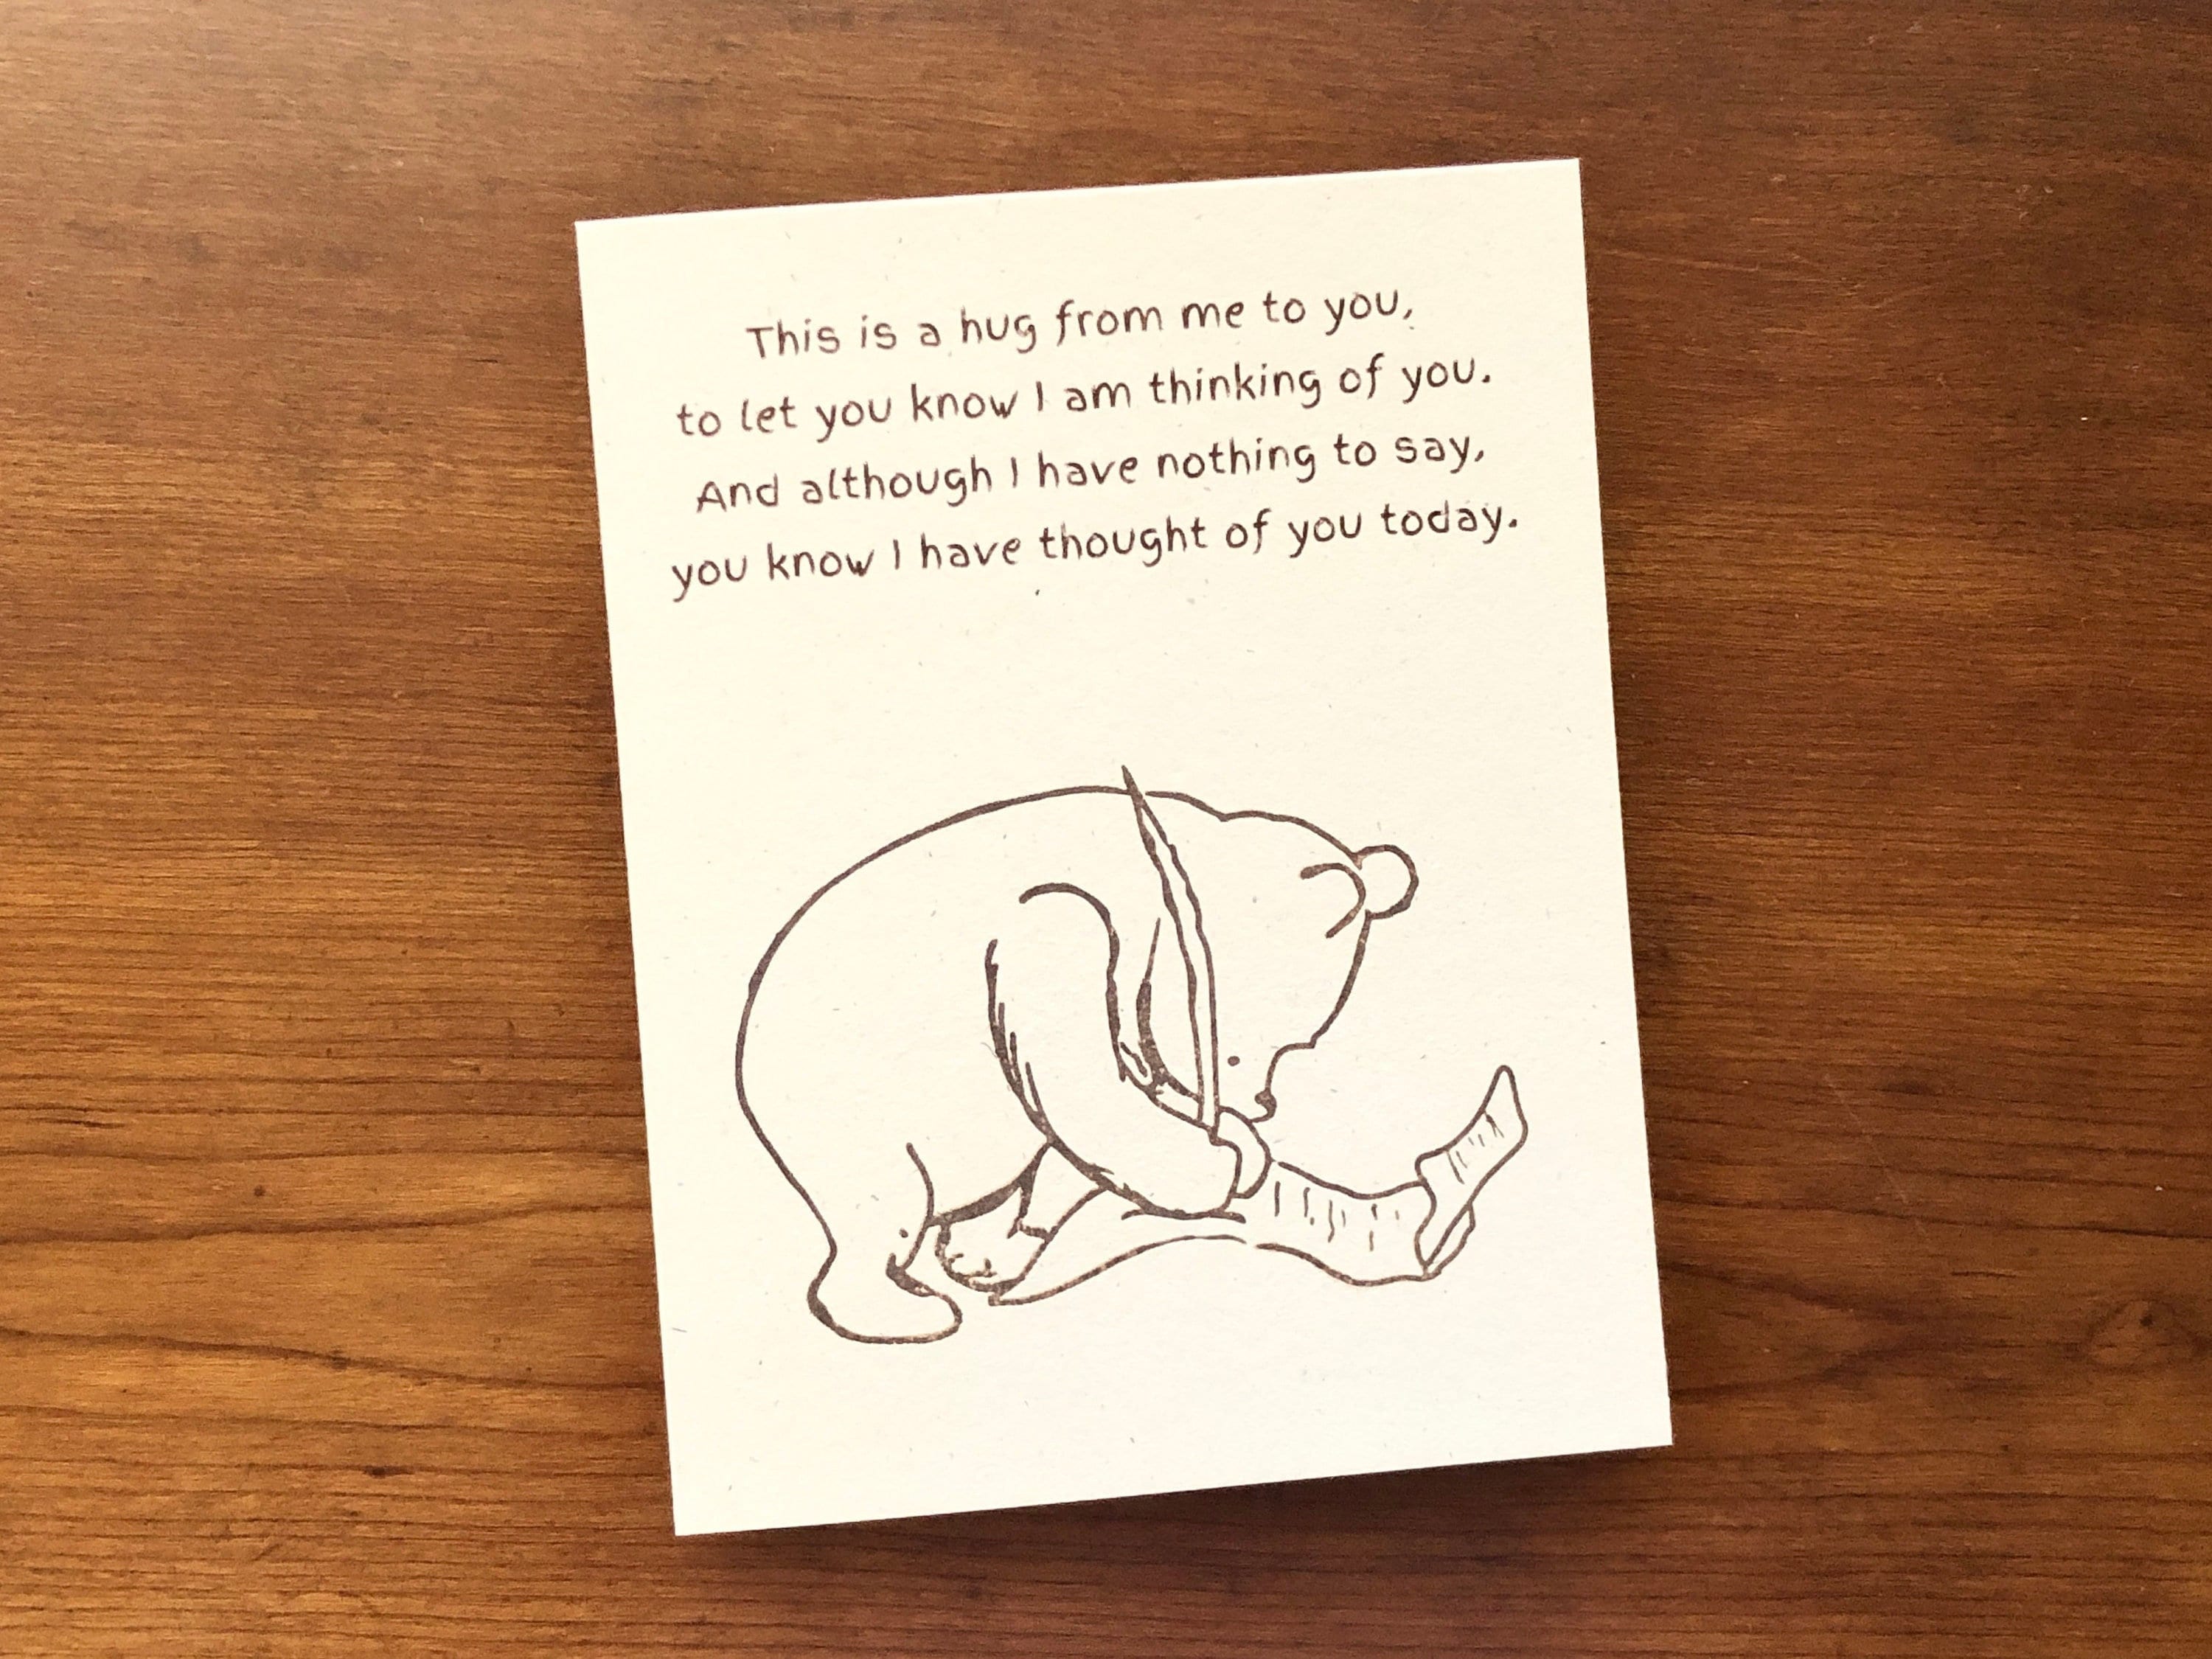 This is a hug from me to you,
to let you know I am thinking of you.
And although I have nothing to say,
you know I have thought of you today.